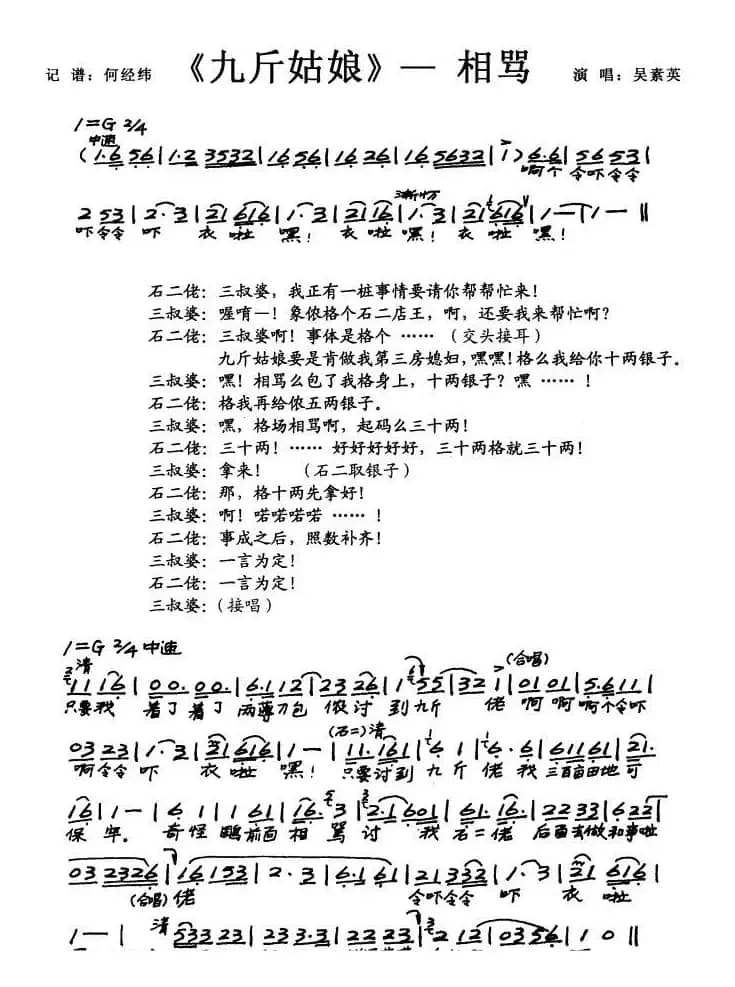 记 谱：何经纬 《九斤姑娘》— 相骂 演 唱：吴素英
1=G 2/4
中速
(1·6 56|1·2 3532|16 56|16 26|16 5632|i) 6·6|56 53|
啊个 令吓令令
渐慢
2 53|2·3|21 616|1·3|21 16|1·3|21 616|1—|1—‖
吓令令 吓 衣 啦 嘿！ 衣 啦 嘿！ 衣 啦 嘿！
石二佬：三叔婆，我正有一桩事情要请你帮帮忙来！
三叔婆：喔唷—！象侬格个石二店王，啊，还要我来帮忙啊？
石二佬：三叔婆啊！事体是格个 ……（交头接耳）
九斤姑娘要是肯做我第三房媳妇，嘿嘿！格么我给你十两银子。
三叔婆：嘿！相骂么包了我格身上，十两银子？嘿 …… ！
石二佬：格我再给侬五两银子。
三叔婆：嘿，格场相骂啊，起码么三十两！
石二佬：三十两！…… 好好好好好，三十两格就三十两！
三叔婆：拿来！ （石二取银子）
石二佬：那，格十两先拿好！
三叔婆：啊！喏喏喏喏 …… ！
石二佬：事成之后，照数补齐！
三叔婆：一言为定！
石二佬：一言为定！
三叔婆：（接唱）
1=G 2/4 中速
清 (合唱)
11 16|00·00·|6·1 12|23 26|1 55|32 i|01 01|5·6 11|
只要我 着了着了 两薄刀包 侬 讨 到 九斤 佬 啊 啊 啊个令吓
(石二)清
03 23|1·3|21 616|1—|11·161|6 1|6·6|61161|21·|
啊令令 吓 衣 啦 嘿！ 只要讨到 九斤 佬 我 三百亩田地 可
16|1—|6 1|1 61|16·3|2·1 601|61·16·|22 33|6 22|
保 牢。 奇怪 前面 相 骂 讨 我 石二佬 后面去做和事啦
03 2326|16 153|2·3|6·1 61|21 332|1·3|21 616|
(合唱) 佬 令吓令令 吓 衣 啦
清
1—|533 23|03 31|22 23|2 12|03 56|10‖